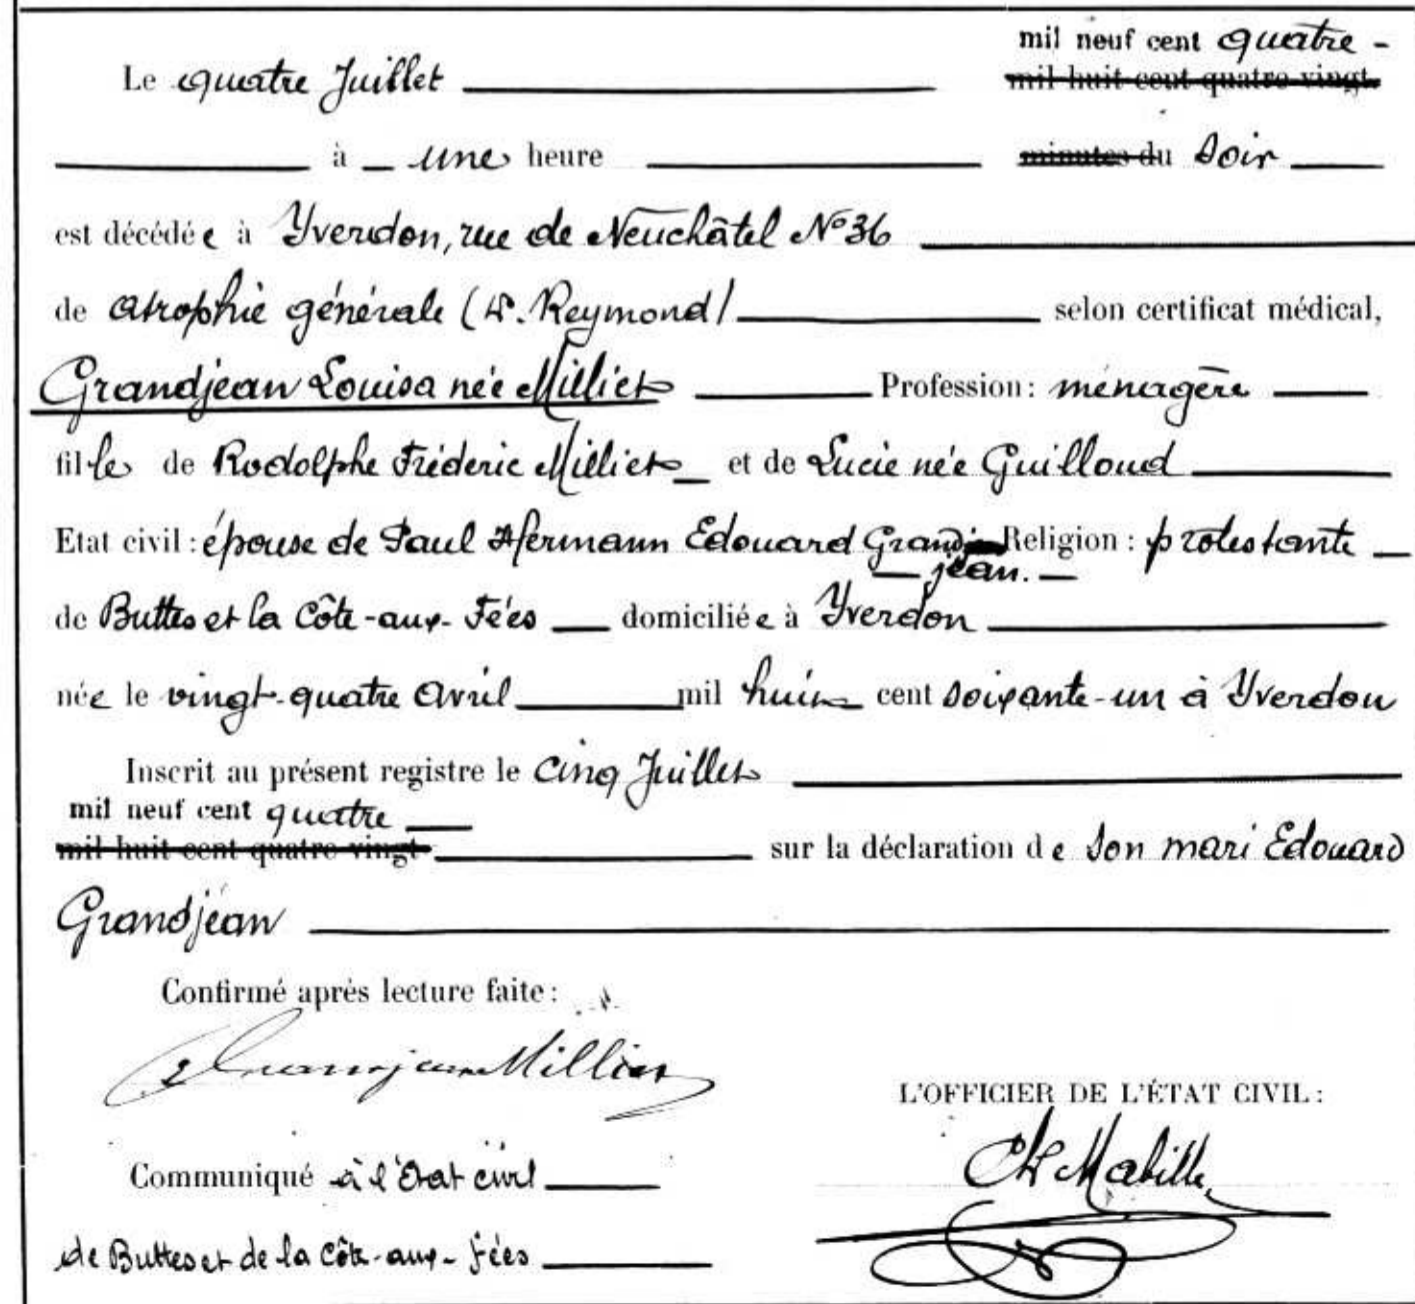 mil neuf cent quatre -
Le quatre Juillet mil huit cent quatre vingt
à une heure minutes du soir
est décédée à Yverdon, rue de Neuchâtel N° 36
de atrophie générale (Dr. Reymond) selon certificat médical,
Grandjean Louisa née Milliet Profession : ménagère
fille de Rodolphe Fréderic Milliet et de Lucie née Guilloud
Etat civil : épouse de Paul Hermann Edouard Grand- Religion : protestante
jean.
de Buttes et la Côte-aux-Fées domiciliée à Yverdon
née le vingt-quatre Avril mil huit cent soixante-un à Yverdon
Inscrit au présent registre le cinq Juillet
mil neuf cent quatre
mil huit cent quatre vingt sur la déclaration de son mari Edouard
Grandjean
Confirmé après lecture faite :
Grandjean Milliet
L'OFFICIER DE L'ÉTAT CIVIL :
Communiqué à l'Etat civil
Ch Mabille
de Buttes et de la Côte-aux-Fées